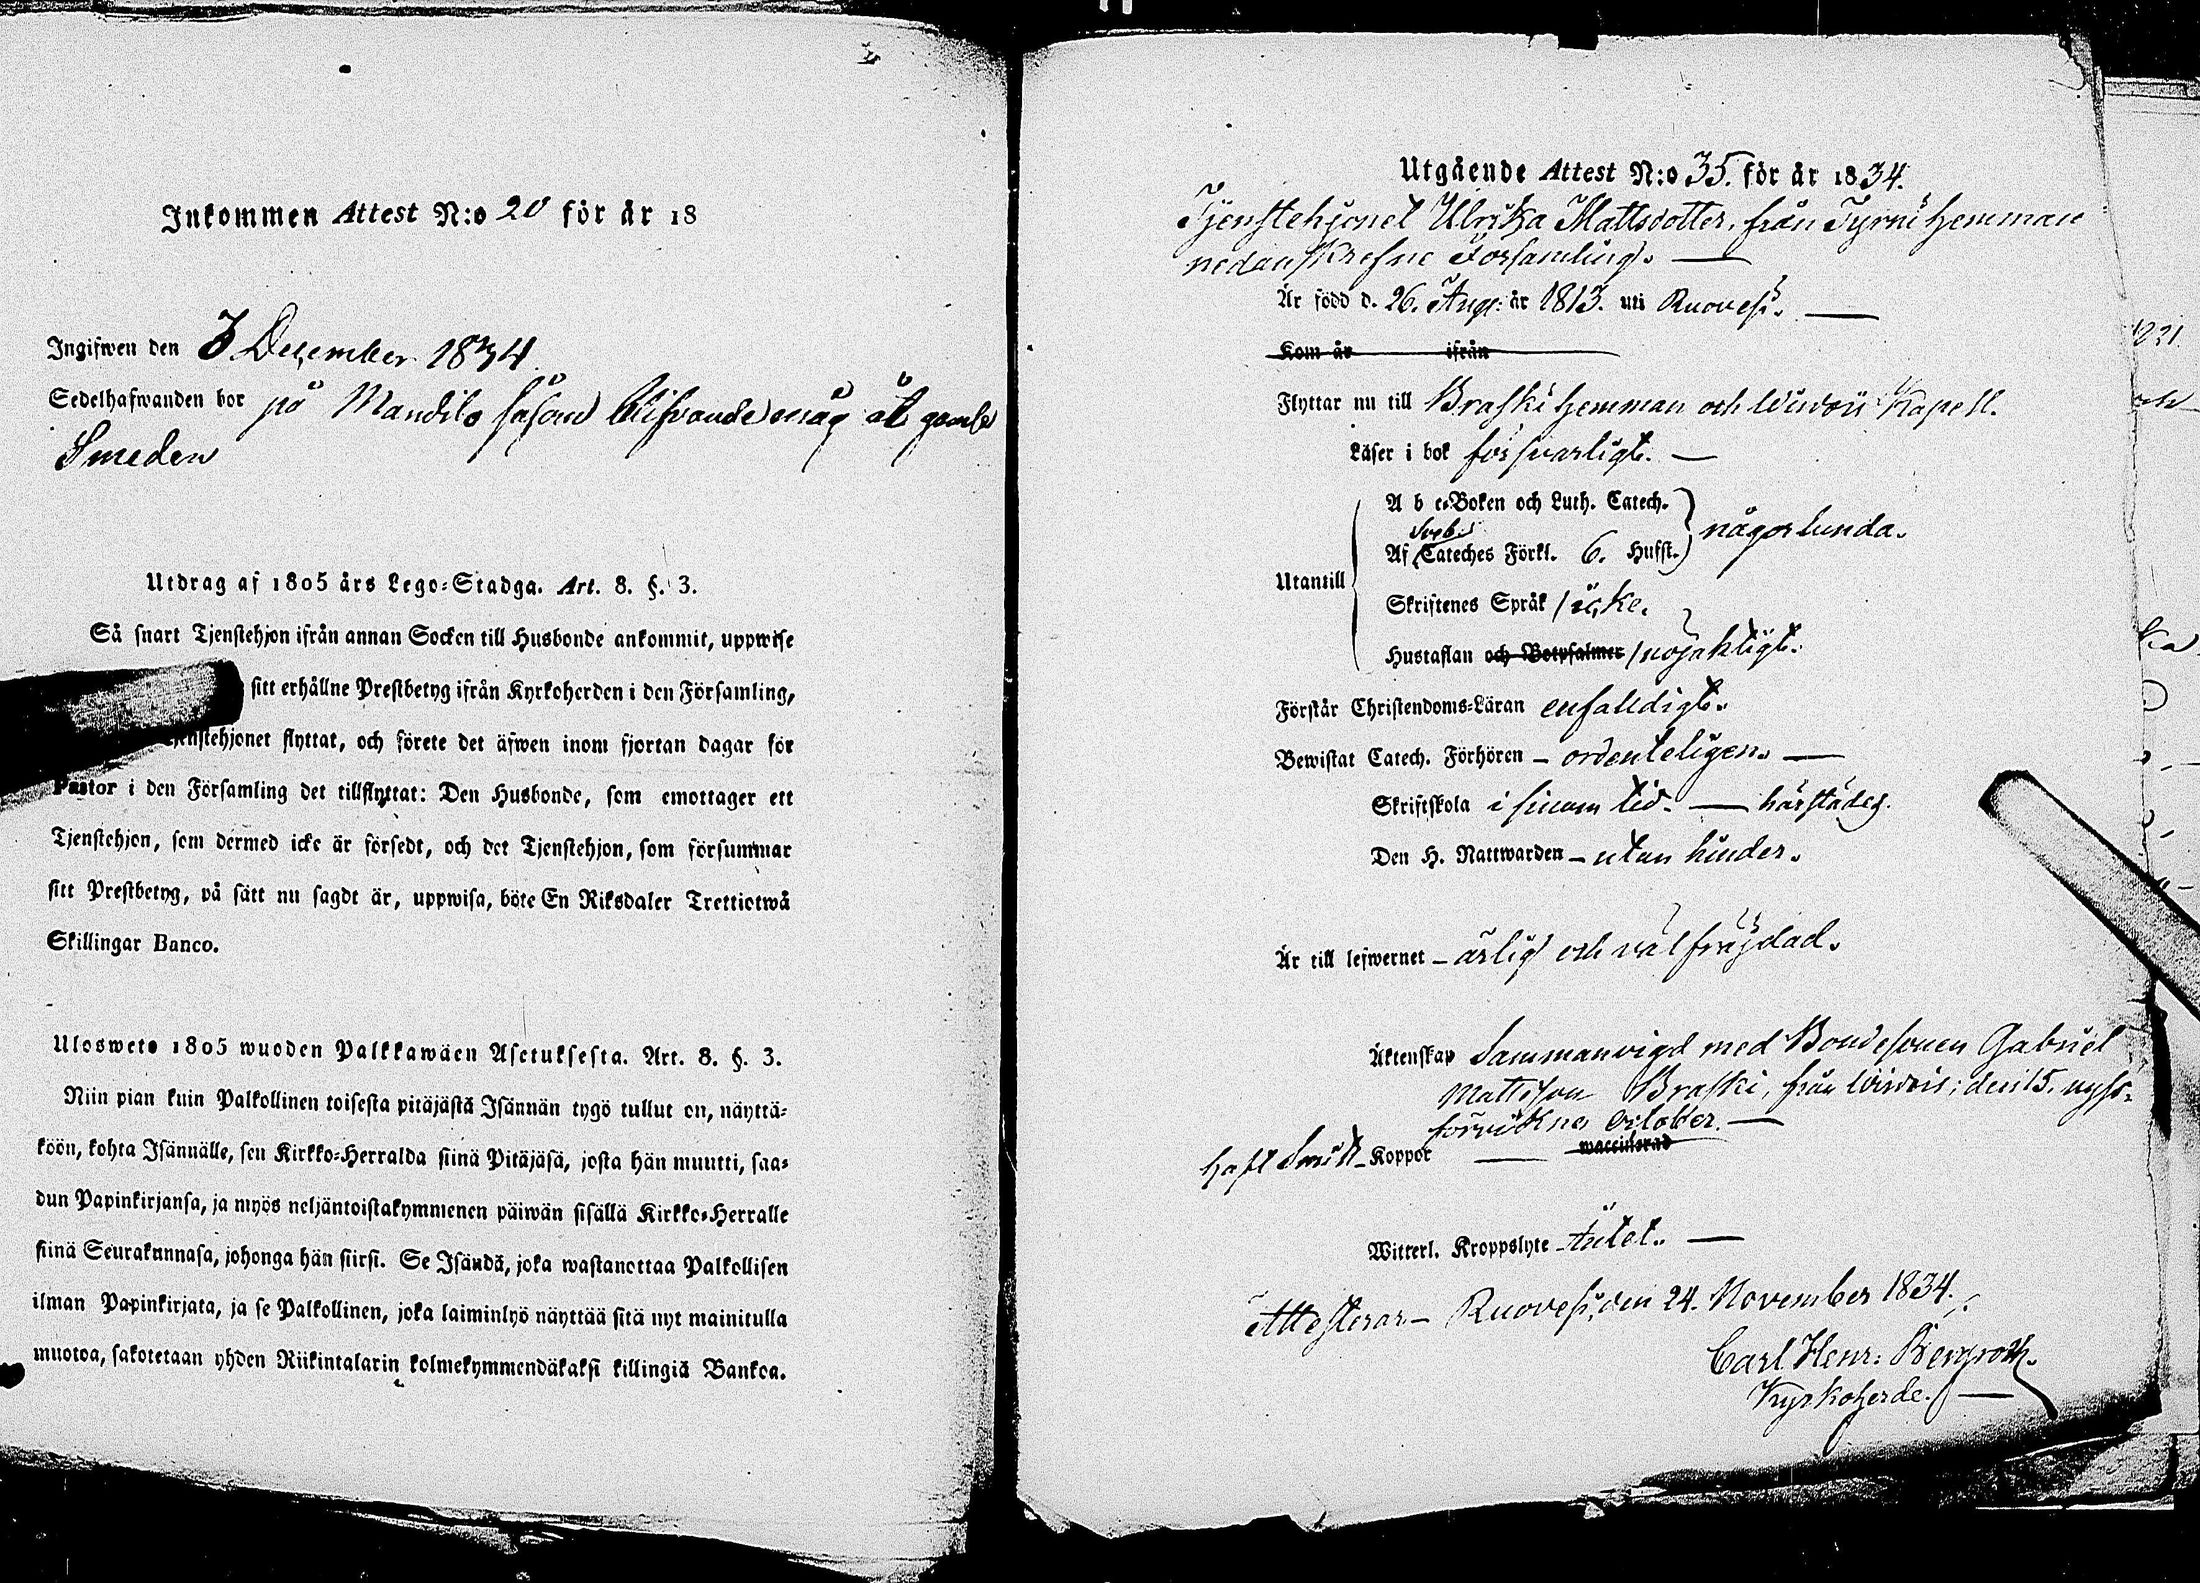 Inkommen Attest N:o 20 för år 18
Ingifwen den 3 December 1834
Sedelhafwanden bor på Mandila såsom blifvande måg åt gamla
Smeden
Utdrag af 1805 års Lego-Stadga. Art. 8. §. 3.
Så snart Tjenstehjon ifrån annan Socken till Husbonde ankommit, uppwise
sitt erhållne Prestbetyg ifrån Kyrkoherden i den Församling,
Tjenstehjonet flyttat, och förete det äfwen inom fjortan dagar för
Pastor i den Församling det tillflyttat: Den Husbonde, som emottager ett
Tjenstehjon, som dermed icke är försedt, och det Tjenstehjon, som försummar
sitt Prestbetyg, på sätt nu sagdt är, uppwisa, böte En Riksdaler Trettiotwå
Skillingar Banco.
Ulosweto 1805 wuoden Palkkawäen Asetuksesta. Art. 8. §. 3.
Niin pian kuin Palkollinen toisesta pitäjästä Isännän tygö tullut on, näyttä-
köön, kohta Isännälle, sen Kirkko-Herralda siinä Pitäjäsä, josta hän muutti, saa-
dun Papinkirjansa, ja myös neljäntoistakymmenen päiwän sisällä Kirkko-Herralle
siinä Seurakunnasa, johonga hän siirsi. Se Isändä, joka wastanottaa Palkollisen
ilman Papinkirjata, ja se Palkollinen, joka laiminlyö näyttää sitä nyt mainitulla
muotoa, sakotetaan yhden Riikintalarin kolmekymmendäkaksi killingiä Bankoa.
Utgående Attest N:o 35. för år 1834.
Tjenstehjonet Ulrika Mattsdotter, från Tyrni hemman
nedanskrefne Församling. —
Är född d. 26. Aug: år 1813. uti Ruovesi. —
Kom år ifrån
Flyttar nu till Braski hemman och Wirdois Kapell.
Läser i bok försvarligt. —
A b c-Boken och Luth. Catech.
Sveb:s
Af Cateches Förkl. 6. Hufst. någorlunda.
Utantill
Skriftenes Språk icke.
Hustaflan och Botpsalmer nöjaktigt.
Förstår Christendoms-Läran enfalldigt.
Bewistat Catech. Förhören — ordenteligen. —
Skriftskola i sinom tid. — härstädes.
Den H. Nattwarden — utan hinder.
Är till lefwernet — ärlig och välfrägdad.
Äktenskap Sammanvigd med Bondesonen Gabriel
Mattsson Braski, från Wirdois, den 15. nyss-
förvikne October. —
haft Smitt-Koppor — waccinerad
Witterl. Kroppslyte — Intet. —
Attesterar — Ruovesi, den 24. November 1834.
Carl Henr: Bergroth.
Kyrkoherde. —